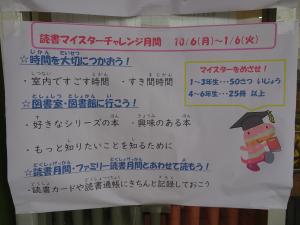 読書マイスターチャレンジ月間 10/6(月)～1/6(火)
☆時間を大切につかおう!
・室内ですごす時間 ・すき間時間
☆図書室・図書館に行こう!
・好きなシリーズの本 ・興味のある本
・もっと知りたいことを知るために
☆読書月間・ファミリー読書月間とあわせて読もう!
・読書カードや読書通帳にきちんと記録しておこう
マイスターをめざせ!
1～3年生・・・50さつ いじょう
4～6年生・・・25冊 以上